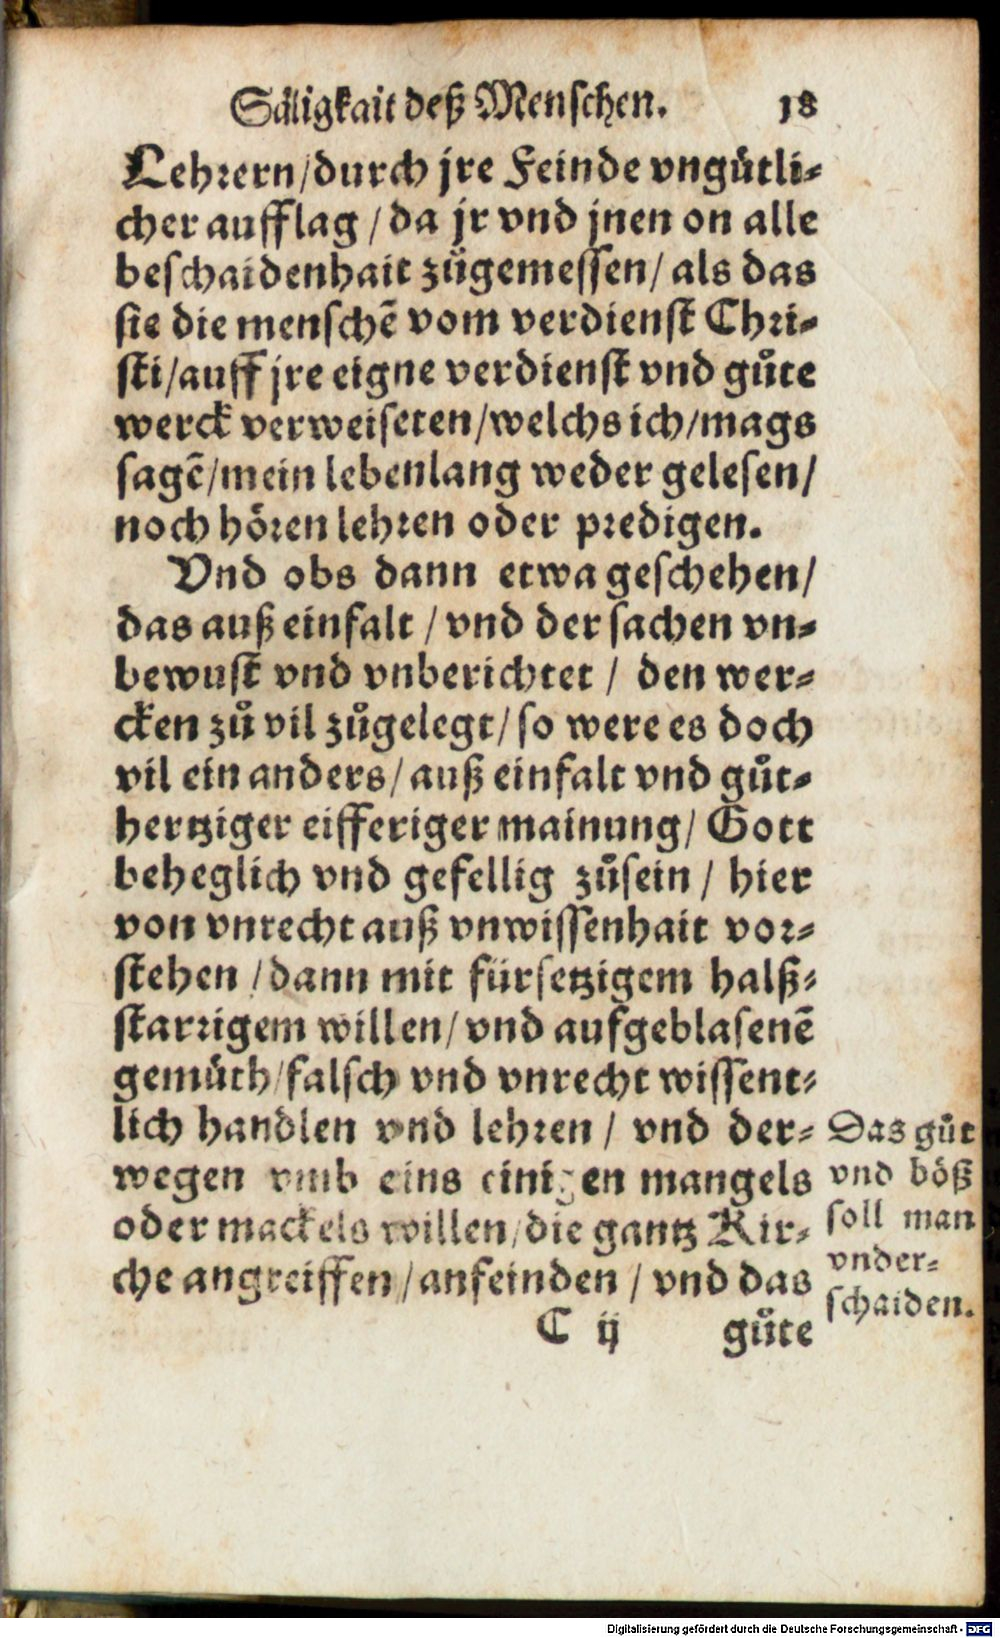 Säligkait deß Menschen. 18
Lehrern/durch jre Feinde vngütli-
cher aufflag/da jr vnd jnen on alle
beschaidenhait zůgemessen/als das
sie die menschē vom verdienst Chri-
sti/auff jre eigne verdienst vnd gůte
werck verweiseten/welchs ich/mags
sagē/mein lebenlang weder gelesen/
noch hören lehren oder predigen.
Vnd obs dann etwa geschehen/
das auß einfalt/vnd der sachen vn-
bewust vnd vnberichtet/den wer-
cken zů vil zůgelegt/so were es doch
vil ein anders/auß einfalt vnd gůt-
hertziger eifferiger mainung/Gott
beheglich vnd gefellig zůsein/hier
von vnrecht auß vnwissenhait vor-
stehen/dann mit fürsetzigem halß-
starrigem willen/vnd aufgeblasenē
gemüth/falsch vnd vnrecht wissent-
lich handlen vnd lehren/vnd der-
wegen vmb eins einigen mangels
oder mackels willen/die gantz Kir-
che angreiffen/anfeinden/vnd das
C ij gůte
Das gůt
vnd böß
soll man
vnder-
schaiden.
Digitalisierung gefördert durch die Deutsche Forschungsgemeinschaft - DFG